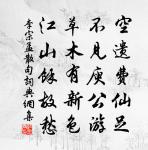 空遗费仙足
不见庾公游
草木有新色
江山馀故愁
李宗孟散句词典网集